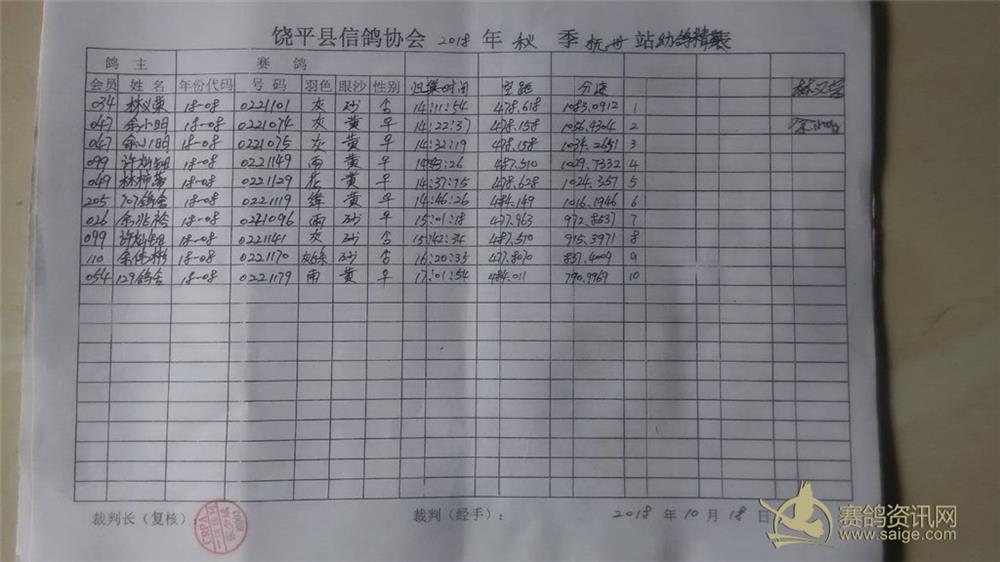 饶平县信鸽协会 2018 年 秋 季 杭州 站幼鸽精英表
鸽 主 赛 鸽
会员 姓 名 年份代码 号 码 羽色 眼沙 性别 归巢时间 空距 分速 林义荣
034 林义荣 18-08 0221101 灰 砂 14:11:54 478.618 1083.0912 1
047 余小明 18-08 0221074 灰 黄 14:22:37 478.158 1056.4304 2
047 余小明 18-08 0221075 灰 黄 14:32:19 478.158 1034.2651 3
099 18-08 0221149 雨 黄 26 487.510 1029.7332 4
049 18-08 0221129 花 黄 14:37:15 478.628 1024.357 5
205 707鸽舍 18-08 0221119 绛 黄 14:46:26 484.149 1016.1946 6
026 余兆 18-08 0221096 雨 砂 15:01:18 477.963 972.8537 7
099 18-08 0221141 灰 砂 15:42:34 487.510 915.3971 8
110 余伟彬 18-08 0221170 砂 16:20:35 477.8070 837.4009 9
054 129鸽舍 18-08 0221179 雨 黄 17:01:54 484.011 790.9969 10
裁判长（复核）： CRPA 裁判（经手）： 2018 年 10 月 18 日
赛鸽资讯网
www.saige.com